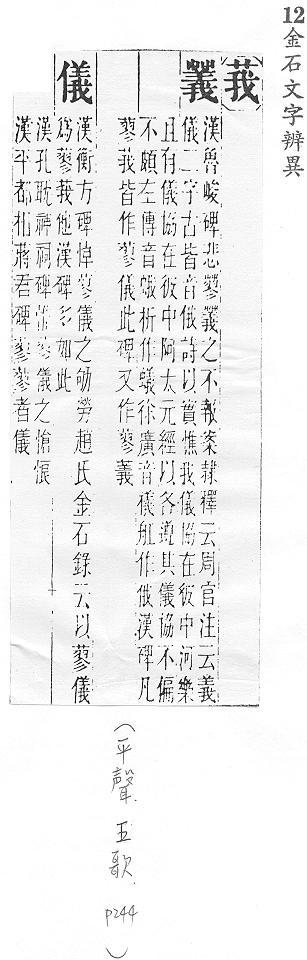 12金石文字辨異
莪
義
漢魯峻碑悲蓼義之不報案隸釋云周官注云義
儀二字古皆音俄詩以實惟我儀協在彼中河樂
且有儀協在彼中阿太元經以各遵其儀協不偏
不頗左傳音蛾析作蟻徐廣音檥船作俄漢碑凡
蓼莪皆作蓼儀此碑又作蓼義
儀
漢衡方碑悼蓼儀之劬勞趙氏金石錄云以蓼儀
為蓼莪他漢碑多如此
漢孔耽神祠碑 蓼儀之愴悢
漢平都相蔣君碑蓼蓼者儀
(平聲.五歌.p244)